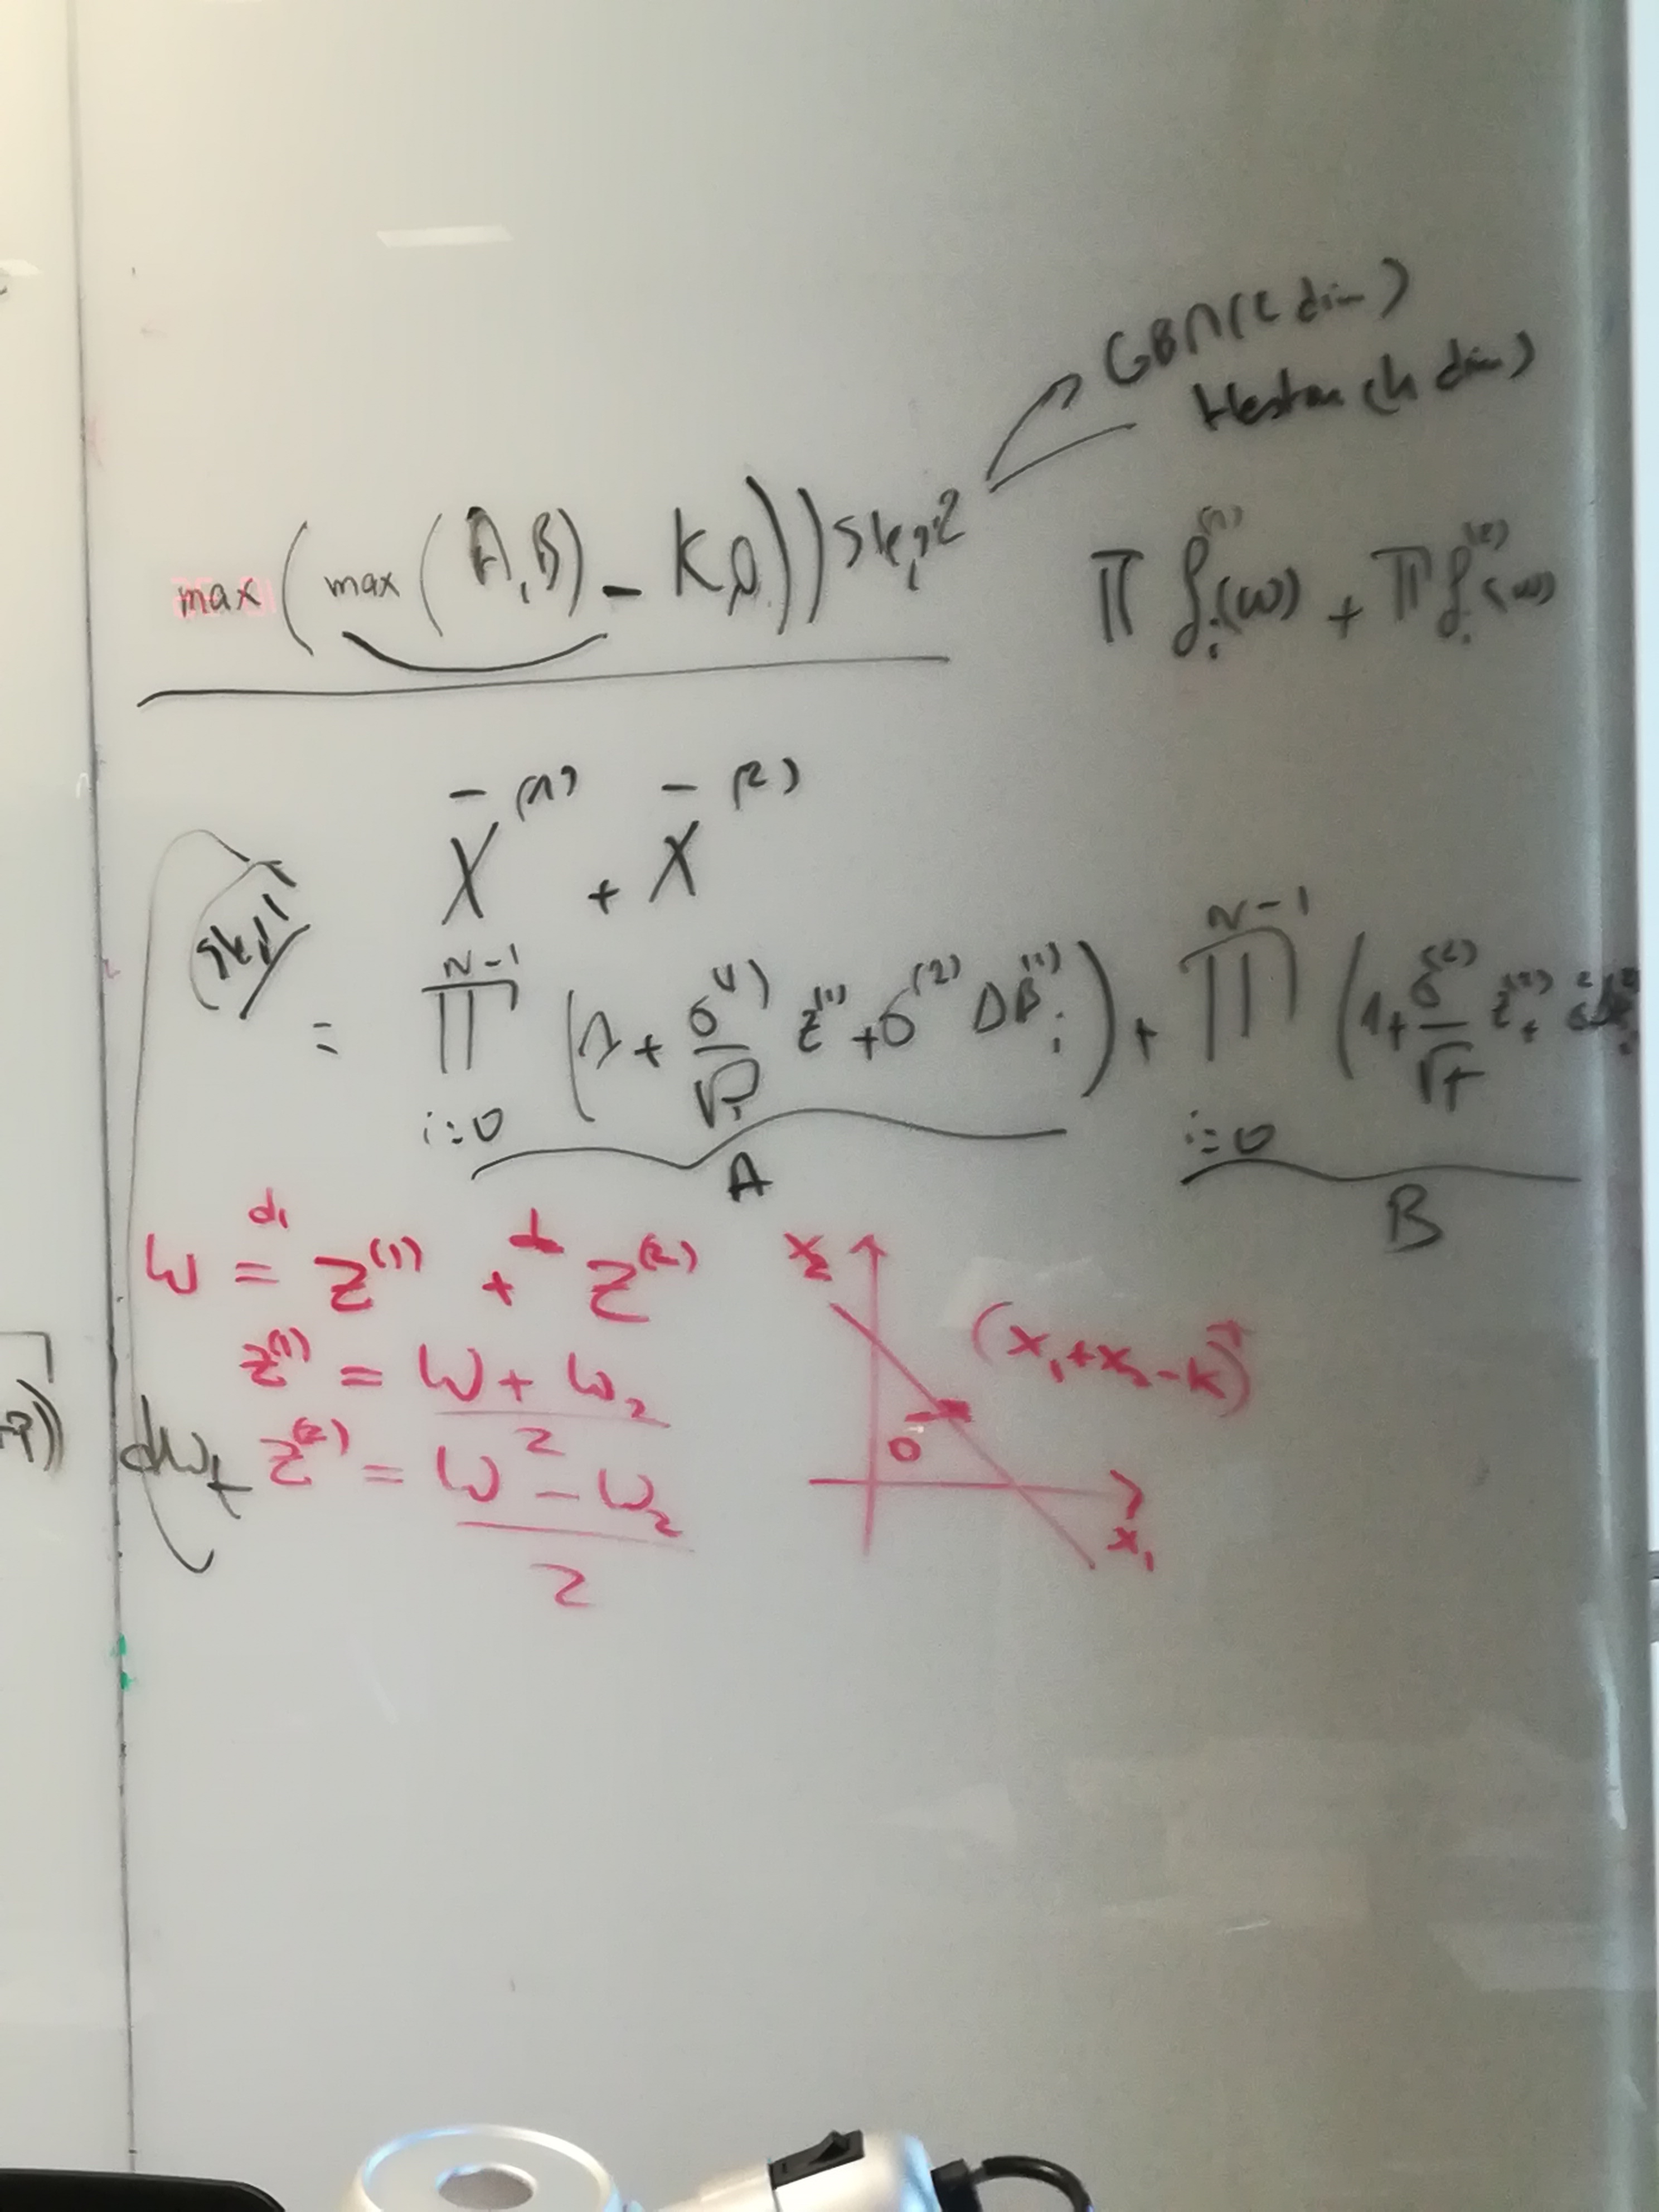 GBM (2 dim)
Heston (4 dim)
max(max(A,B) - K,0)) Step 2
∏ f_i^(1)(ω) + ∏ f_i^(2)(ω)
X̄^(1) + X̄^(2)
Step 1
= ∏_{i=0}^{N-1} (1 + σ^(1)/√ z^(1) + σ^(2) ΔB_i^(1)) + ∏_{i=0}^{N-1} (1 + σ^(2)/√T z^(2) +
A
B
W = d_1 Z^(1) + d Z^(2)
Z^(1) = (W + W_2)/2
dW_t
Z^(2) = (W - W_2)/2
x_2
(x_1 + x_2 - K)^+
0
x_1